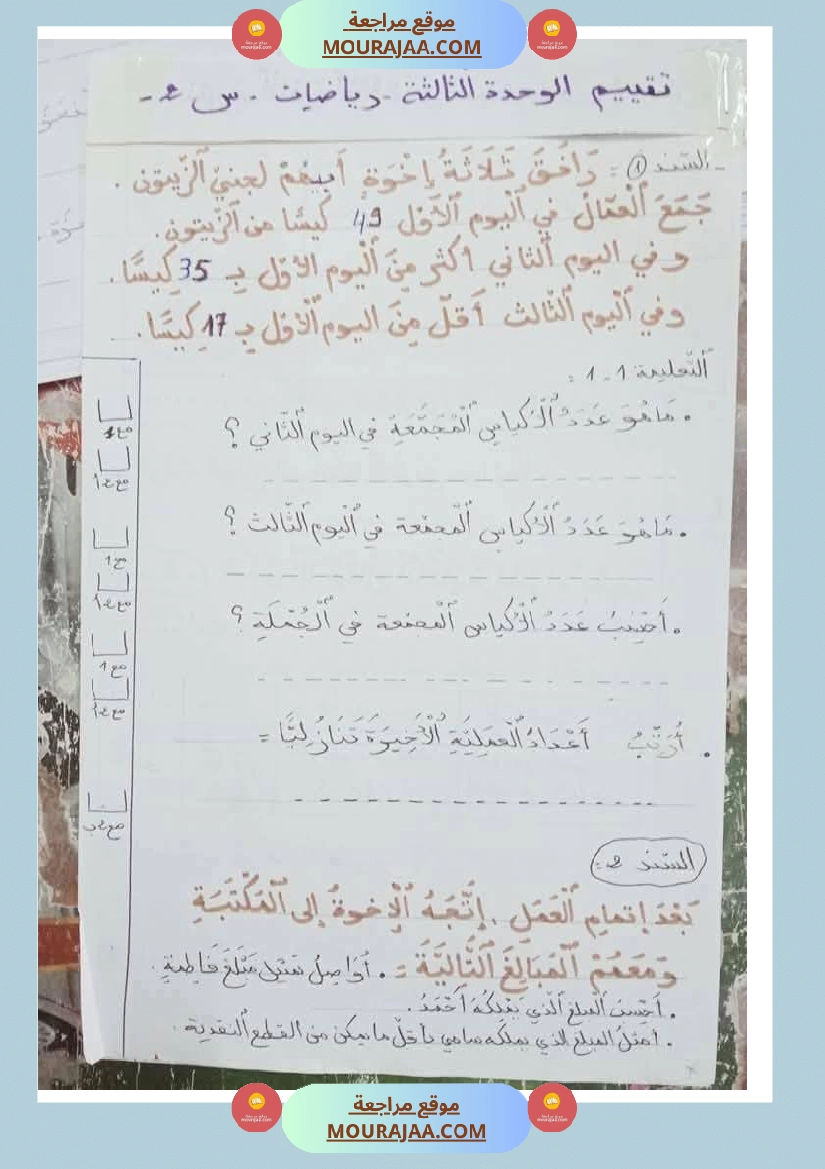 موقع مراجعة
MOURAJAA.COM
تقييم الوحدة الثالثة - رياضيات - س 2 -
- السّند ① : رَافَقَ ثَلَاثَةُ إِخْوَةٍ أَبِيهُمْ لِجَنْيِ ٱلزَّيتون .
جَمَعَ ٱلْعمّالُ في ٱلْيوم ٱلْأوّل 49 كيسًا من ٱلزّيتون.
و في اليوم ٱلثاني أكثر مِنَ ٱلْيوم الأوّل بـ 35 كِيسًا.
وفي ٱلْيوم ٱلثّالث أقلّ مِنَ اليوم ٱلْأوّل بِـ 17 كِيسًا.
ٱلتّعليمة 1 - 1 :
. مَا هُوَ عَدَدُ ٱلْأكياسِ ٱلْمُجَمَّعَةِ في اليوم ٱلثّاني ؟
مع1
مع2أ
. مَا هُوَ عَدَدُ ٱلْأكياس ٱلْمجمّعة في ٱلْيوم ٱلثّالث ؟
مع1
مع2أ
. أَحْسِبُ عَدَدَ ٱلْأكياس ٱلْمجمّعة في ٱلْجُمْلَةِ ؟
مع1
مع2أ
. أُرَتِّبُ أَعْدَادَ ٱلْعَمَلِيَّةِ ٱلْأَخِيرَةِ تَنَازُلِيًّا =
مع2ب
السّند 2 :
بَعْدَ إتمام ٱلْعَمَلِ ، إِتَّجَهَ ٱلْإخوةُ إلى ٱلْمَكْتَبَةِ
وَمَعَهُمْ ٱلْمَبَالِغَ ٱلتَّالِيَّةَ : . أُوَاصِلُ تمثيل مَبْلَغَ فَاطِمَةٍ .
. أحسب ٱلْمبلغ ٱلّذي يَمْلكُهُ أَحْمَدُ .
. أمثّلُ المبلغ الذي يملكه سامي بأقلّ ما يمكن من القطع ٱلنقدية .
موقع مراجعة
MOURAJAA.COM